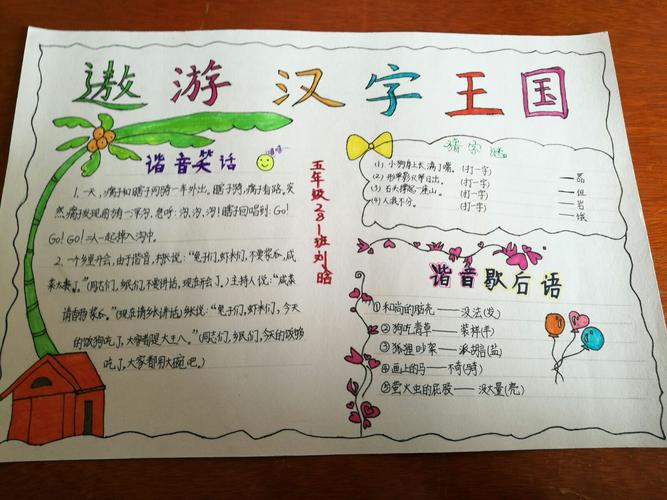 遨游汉字王国
谐音笑话
嘻嘻
1. 一天,瘸子和瞎子同骑一车外出。瞎子骑,瘸子看路,突
然,瘸子发现前有一深沟,急呼:沟,沟,沟!瞎子回唱到:Go!
Go! Go! 二人一起掉入沟中。
2. 一个乡里开会,由于谐音,村长说:“兔子们,虾米们,不要浆瓜,咸
菜太贵了。”(同志们,乡民们,不要讲话,现在开会了。)主持人说:“咸菜
请香肠浆瓜。”(现在请乡长讲话)乡长说:“兔子们,虾米们,今天
的饭狗吃了,大家都是大王八。”(同志们,乡民们,今天的饭够
吃了,大家都用大碗吧。)
五年级281班刘晗
猜字谜
(1)小狗身上长满了嘴。(打一字) ——品
(2)形单影只单日出。(打一字) ——但
(3)石头撑起一座山。(打一字) ——岩
(4)人我不分。(打一字) ——俄
谐音歇后语
①和尚的脑壳——没法(发)
②狗吃青草——装样(羊)
③狐狸吵菜——
④画上的马——不奇(骑)
⑤萤火虫的屁股——没大量(亮)